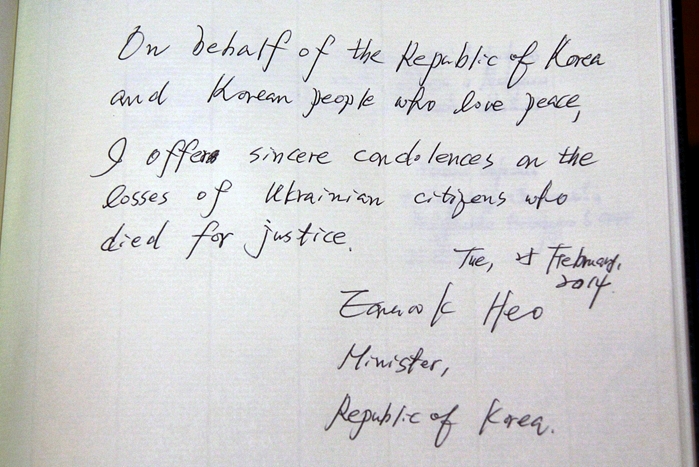 On behalf of the Republic of Korea
and Korean people who love peace,
I offer sincere condolences on the
losses of Ukrainian citizens who
died for justice.
Tue, February,
2014.
Heo
Minister,
Republic of Korea.